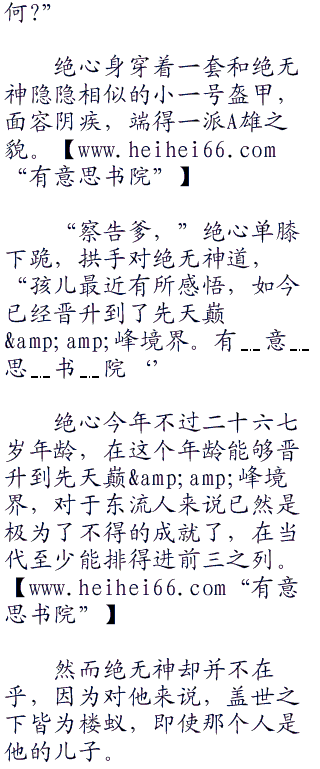 何?”
绝心身穿着一套和绝无
神隐隐相似的小一号盔甲，
面容阴疾，端得一派A雄之
貌。【www.heihei66.com
“有意思书院”】
“察告爹，”绝心单膝
下跪，拱手对绝无神道，
“孩儿最近有所感悟，如今
已经晋升到了先天巅
&amp;amp;峰境界。有__意__
思__书__院‘’
绝心今年不过二十六七
岁年龄，在这个年龄能够晋
升到先天巅&amp;amp;峰境
界，对于东流人来说已然是
极为了不得的成就了，在当
代至少能排得进前三之列。
【www.heihei66.com“有意
思书院”】
然而绝无神却并不在
乎，因为对他来说，盖世之
下皆为楼蚁，即使那个人是
他的儿子。